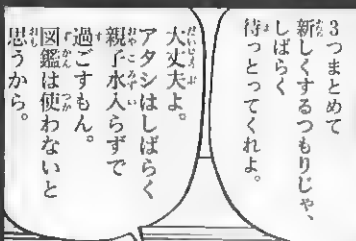 3つまとめて
新しくするつもりじゃ、
しばらく
待っとってくれよ。
大丈夫よ。
アタシはしばらく
親子水入らずで
過ごすもん。
図鑑は使わないと
思うから。